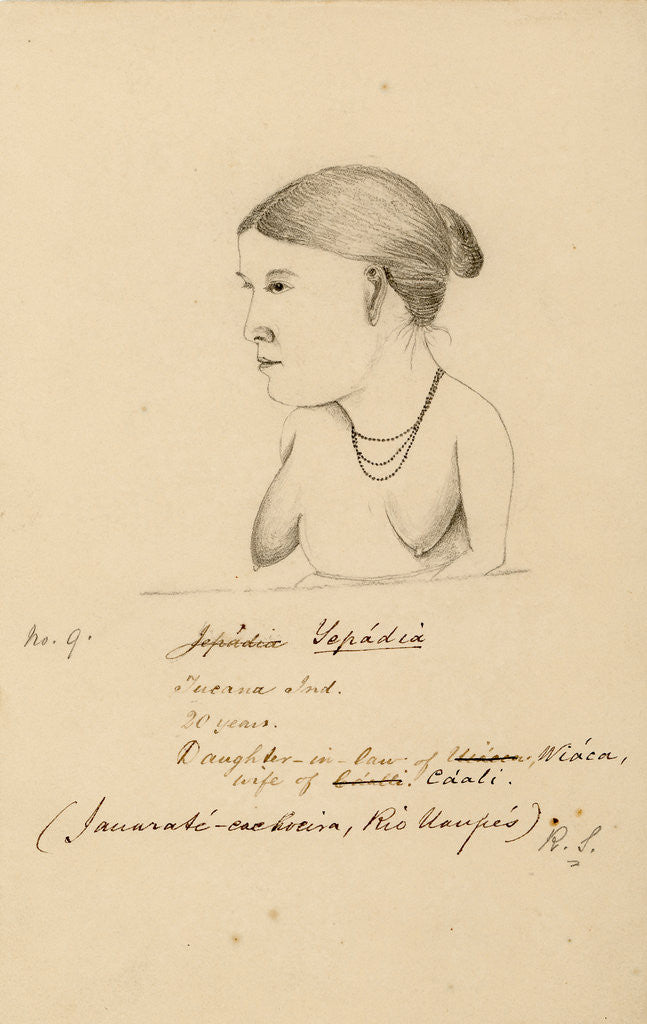 No. 9. Jepádia Yepádia
Tucana Ind.
20 years.
Daughter-in-law of Uiáca. Wiáca,
wife of Cáalli. Cáali.
(Jauaraté-cachoeira, Rio Uaupés).
R. S.